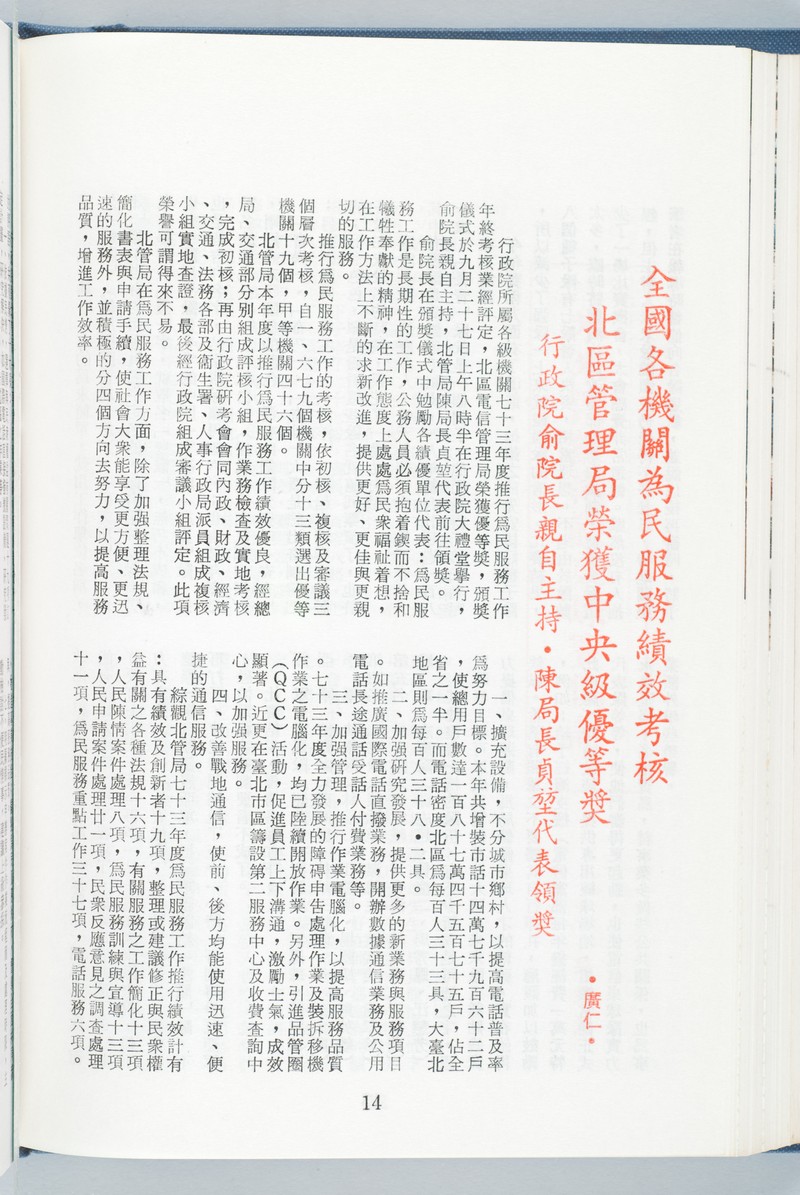 全國各機關為民服務績效考核
北區管理局榮獲中央級優等獎
行政院俞院長親自主持・陳局長貞堃代表領獎
・廣仁・
行政院所屬各級機關七十三年度推行爲民服務工作
年終考核業經評定，北區電信管理局榮獲優等獎，頒獎
儀式於九月二十七日上午八時半在行政院大禮堂舉行，
俞院長親自主持，北管局陳局長貞堃代表前往領獎。
俞院長在頒獎儀式中勉勵各績優單位代表：爲民服
務工作是長期性的工作，公務人員必須抱着鍥而不捨和
犧牲奉獻的精神，在工作態度上處處爲民衆福祉着想，
在工作方法上不斷的求新改進，提供更好、更佳與更親
切的服務。
推行爲民服務工作的考核，依初核、複核及審議三
個層次考核，自一、六七九個機關中分十三類選出優等
機關十九個，甲等機關四十六個。
北管局本年度以推行爲民服務工作績效優良，經總
局、交通部分別組成評核小組，作業務檢查及實地考核
，完成初核；再由行政院研考會會同內政、財政、經濟
、交通、法務各部及衞生署、人事行政局派員組成複核
小組實地查證，最後經行政院組成審議小組評定。此項
榮譽可謂得來不易。
北管局在爲民服務工作方面，除了加强整理法規、
簡化書表與申請手續，使社會大衆能享受更方便、更迅
速的服務外，並積極的分四個方向去努力，以提高服務
品質，增進工作效率。
一、擴充設備，不分城市鄉村，以提高電話普及率
爲努力目標。本年共增裝市話十四萬七千九百六十二戶
，使總用戶數達一百八十七萬四千五百七十五戶，佔全
省之一半。而電話密度北區爲每百人三十三具，大臺北
地區則爲每百人三十八・二具。
二、加强研究發展，提供更多的新業務與服務項目
。如推廣國際電話直撥業務，開辦數據通信業務及公用
電話長途通話受話人付費業務等。
三、加强管理，推行作業電腦化，以提高服務品質
。七十三年度全力發展的障碍申告處理作業及裝拆移機
作業之電腦化，均已陸續開放作業。另外，引進品管圈
（QCC）活動，促進員工上下溝通，激勵士氣，成效
顯著。近更在臺北市區籌設第二服務中心及收費查詢中
心，以加强服務。
四、改善戰地通信，使前、後方均能使用迅速、便
捷的通信服務。
綜觀北管局七十三年度爲民服務工作推行績效計有
：具有績效及創新者十九項，整理或建議修正與民衆權
益有關之各種法規十六項，有關服務之工作簡化十三項
，人民陳情案件處理八項，爲民服務訓練與宣導十三項
，人民申請案件處理廿一項，民衆反應意見之調查處理
十一項，爲民服務重點工作三十七項，電話服務六項。
14